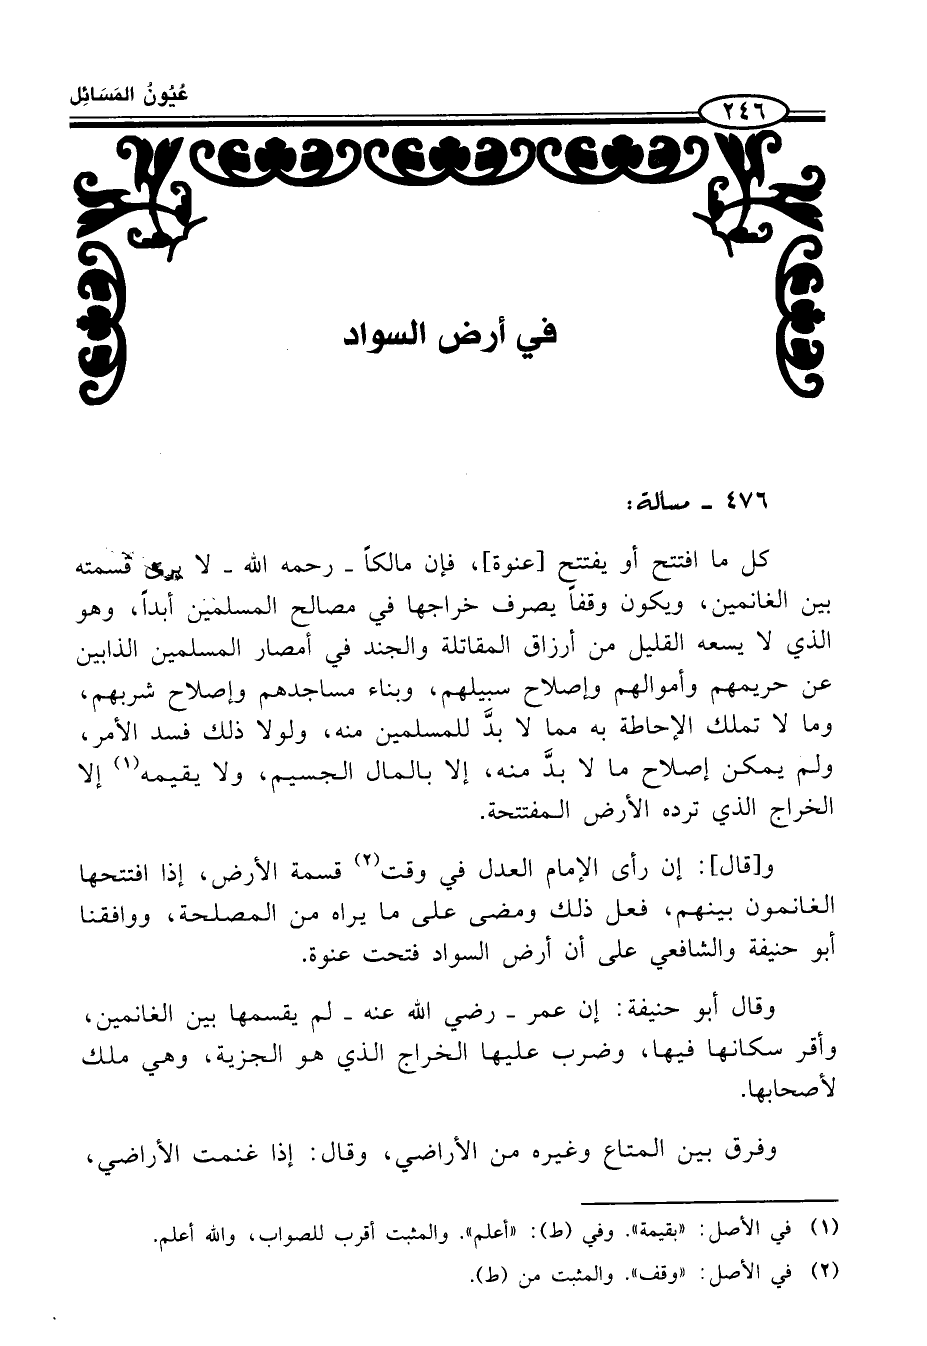 عُيُونُ المَسَائِل
٢٤٦
في أرض السواد
٤٧٦ ـ مسألة:
كل ما افتتح أو يفتتح [عنوة]، فإن مالكاً ـ رحمه الله ـ لا يرى قسمته
بين الغانمين، ويكون وقفاً يصرف خراجها في مصالح المسلمين أبداً، وهو
الذي لا يسعه القليل من أرزاق المقاتلة والجند في أمصار المسلمين الذابين
عن حريمهم وأموالهم وإصلاح سبيلهم، وبناء مساجدهم وإصلاح شربهم،
وما لا تملك الإحاطة به مما لا بدَّ للمسلمين منه، ولولا ذلك فسد الأمر،
ولم يمكن إصلاح ما لا بدَّ منه، إلا بالمال الجسيم، ولا يقيمه(١) إلا
الخراج الذي ترده الأرض المفتتحة.
و[قال]: إن رأى الإمام العدل في وقت(٢) قسمة الأرض، إذا افتتحها
الغانمون بينهم، فعل ذلك ومضى على ما يراه من المصلحة، ووافقنا
أبو حنيفة والشافعي على أن أرض السواد فتحت عنوة.
وقال أبو حنيفة: إن عمر ـ رضي الله عنه ـ لم يقسمها بين الغانمين،
وأقر سكانها فيها، وضرب عليها الخراج الذي هو الجزية، وهي ملك
لأصحابها.
وفرق بين المتاع وغيره من الأراضي، وقال: إذا غنمت الأراضي،
(١) في الأصل: «بقيمة». وفي (ط): «أعلم». والمثبت أقرب للصواب، والله أعلم.
(٢) في الأصل: «وقف». والمثبت من (ط).